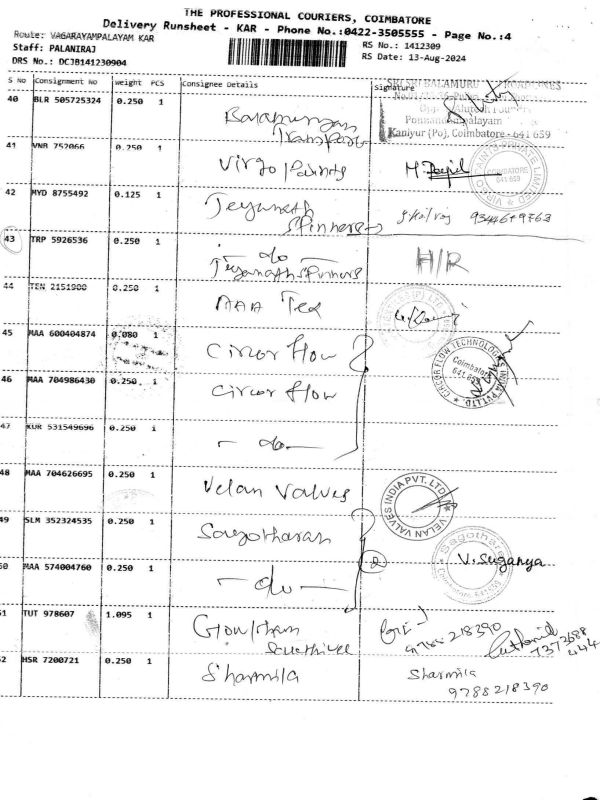 THE PROFESSIONAL COURIERS, COIMBATORE
Delivery Runsheet - KAR - Phone No.:0422-3505555 - Page No.:4
Route: VAGARAYAMPALAYAM KAR
Staff: PALANIRAJ
DRS No.: DCJB141230904
RS No.: 1412309
RS Date: 13-Aug-2024
S No Consignment No weight PCS Consignee Details Signature
40 BLR 505725324 0.250 1
Transport
Ponnandampalayam
Kaniyur (Po), Coimbatore - 641 659
41 VNR 752066 0.250 1 Virgo Paints
COIMBATORE
641 659
42 MYD 8755492 0.125 1 Jeyanath
Spinners
43 TRP 5926536 0.250 1 - do -
Jeyanath Spinners H/R
44 TEN 2151980 0.250 1 AAA Tex
45 MAA 600404874 0.080 1 Circor flow
CIRCOR FLOW TECHNOLOGIES INDIA PVT.LTD.
Coimbatore
641 659
46 MAA 704986430 0.250 1 Circor flow
47 KUR 531549696 0.250 1 - do -
48 MAA 704626695 0.250 1 Velan Valves
VELAN VALVES INDIA PVT. LTD.
49 SLM 352324535 0.250 1 Sagotharan
2 V. Suganya
50 MAA 574004760 0.250 1 - do -
51 TUT 978607 1.095 1
52 HSR 7200721 0.250 1 Sharmila Sharmila
9788218390